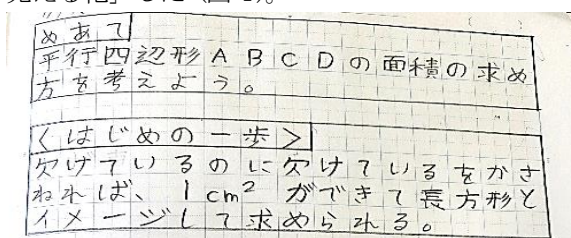 めあて
平行四辺形ABCDの面積の求め
方を考えよう。
<はじめの一歩>
欠けているのに欠けているをかさ
ねれば、1cm²ができて長方形と
イメージして求められる。